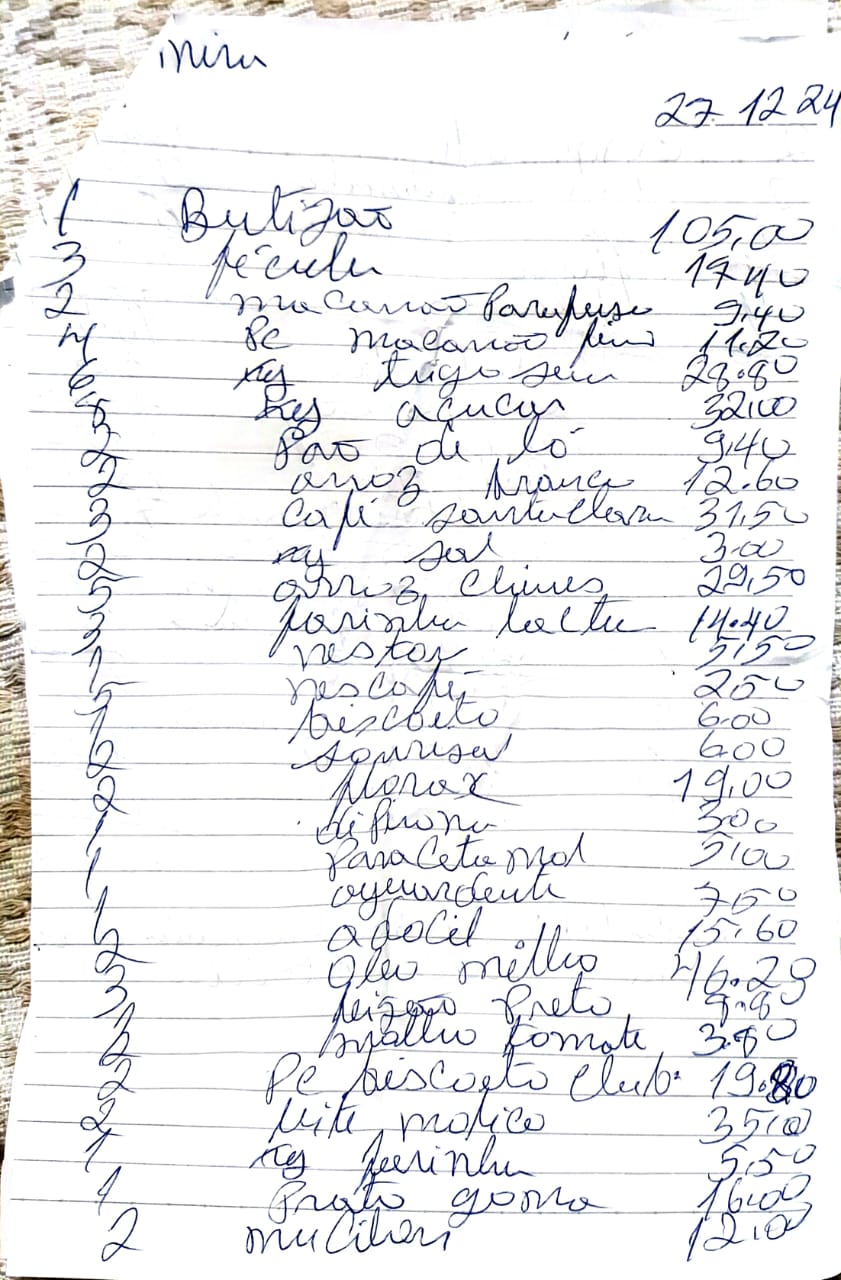 27 12 24
1 Butijão 105,00
3 fécula 17.40
2 macarrão Parafuso 9,40
4 Pc macarrão fino 11.20
6 Kg trigo sem 28.80
8 Kg açucar 32,00
2 Pão de ló 9,40
2 arroz branco 12.60
3 Café santa Clara 31,50
2 Kg sal 3.00
5 arroz chines 29,50
3 farinha lactea 14.40
1 neston 5,50
5 nescafé 250
1 biscoito 6.00
6 sonrisal 6.00
2 florax 19,00
1 dipirona 300
1 Paracetamol 5,00
1 aguardente 750
6 adocil 15.60
2 óleo milho
3 feijão Preto
2 molho tomate 3.80
2 Pc biscoito Club. 19.80
2 leite molico 35,00
1 Kg farinha 5,50
1 Prato goma 16.00
2 mucilon 12,00